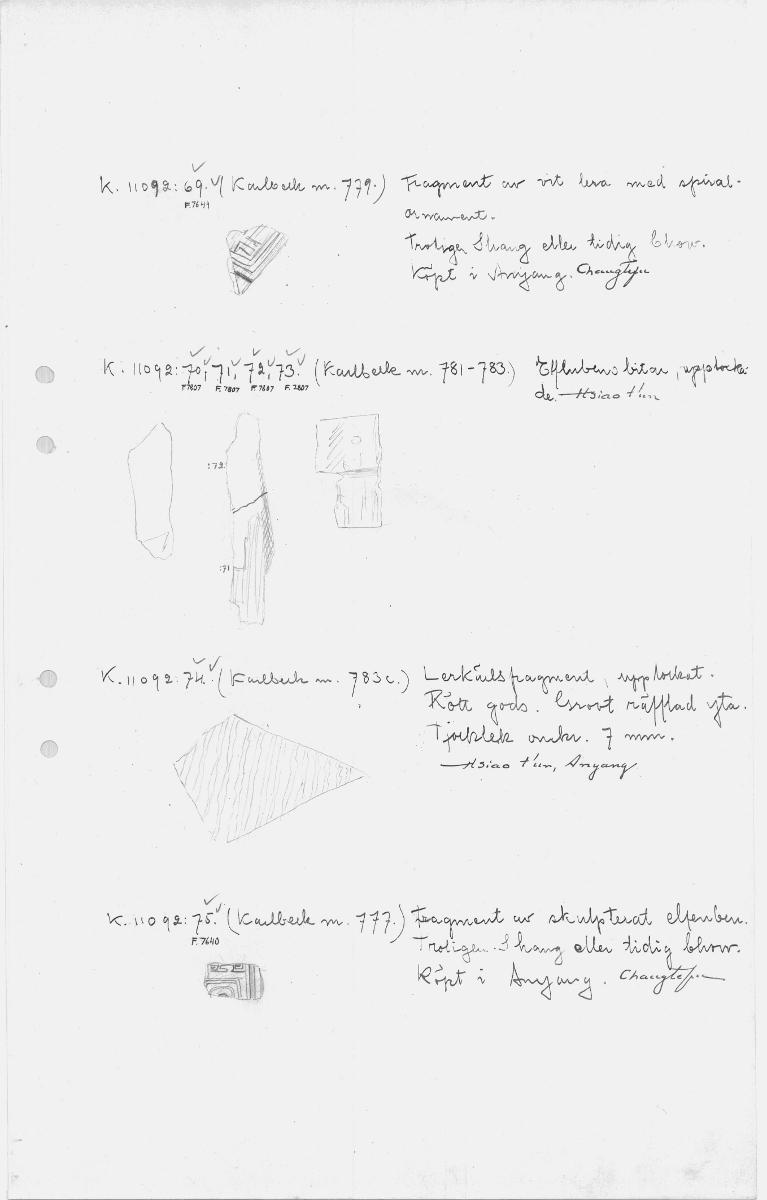 K. 11092:69. (Karlbeck m. 779.) Fragment av vit lera med spiral-
F.7644
ornament.
Troligen Shang eller tidig Chow.
Köpt i Anyang. Changtefu
K. 11092:70, 71, 72, 73. (Karlbeck m. 781-783.) bitar, upplocka-
F.7807 F.7807 F.7807 F.7807
de. Hsiao t'un
:72
:71
K. 11092:74. (Karlbeck m. 783c.) Lerkärlsfragment, upplockat.
Rött gods. Grovt räfflad yta.
Tjocklek omkr. 7 mm.
Hsiao t'un, Anyang
K. 11092:75. (Karlbeck m. 777.) Fragment av skulpterat elfenben.
F.7640
Troligen Shang eller tidig Chow.
Köpt i Anyang. Changtefu